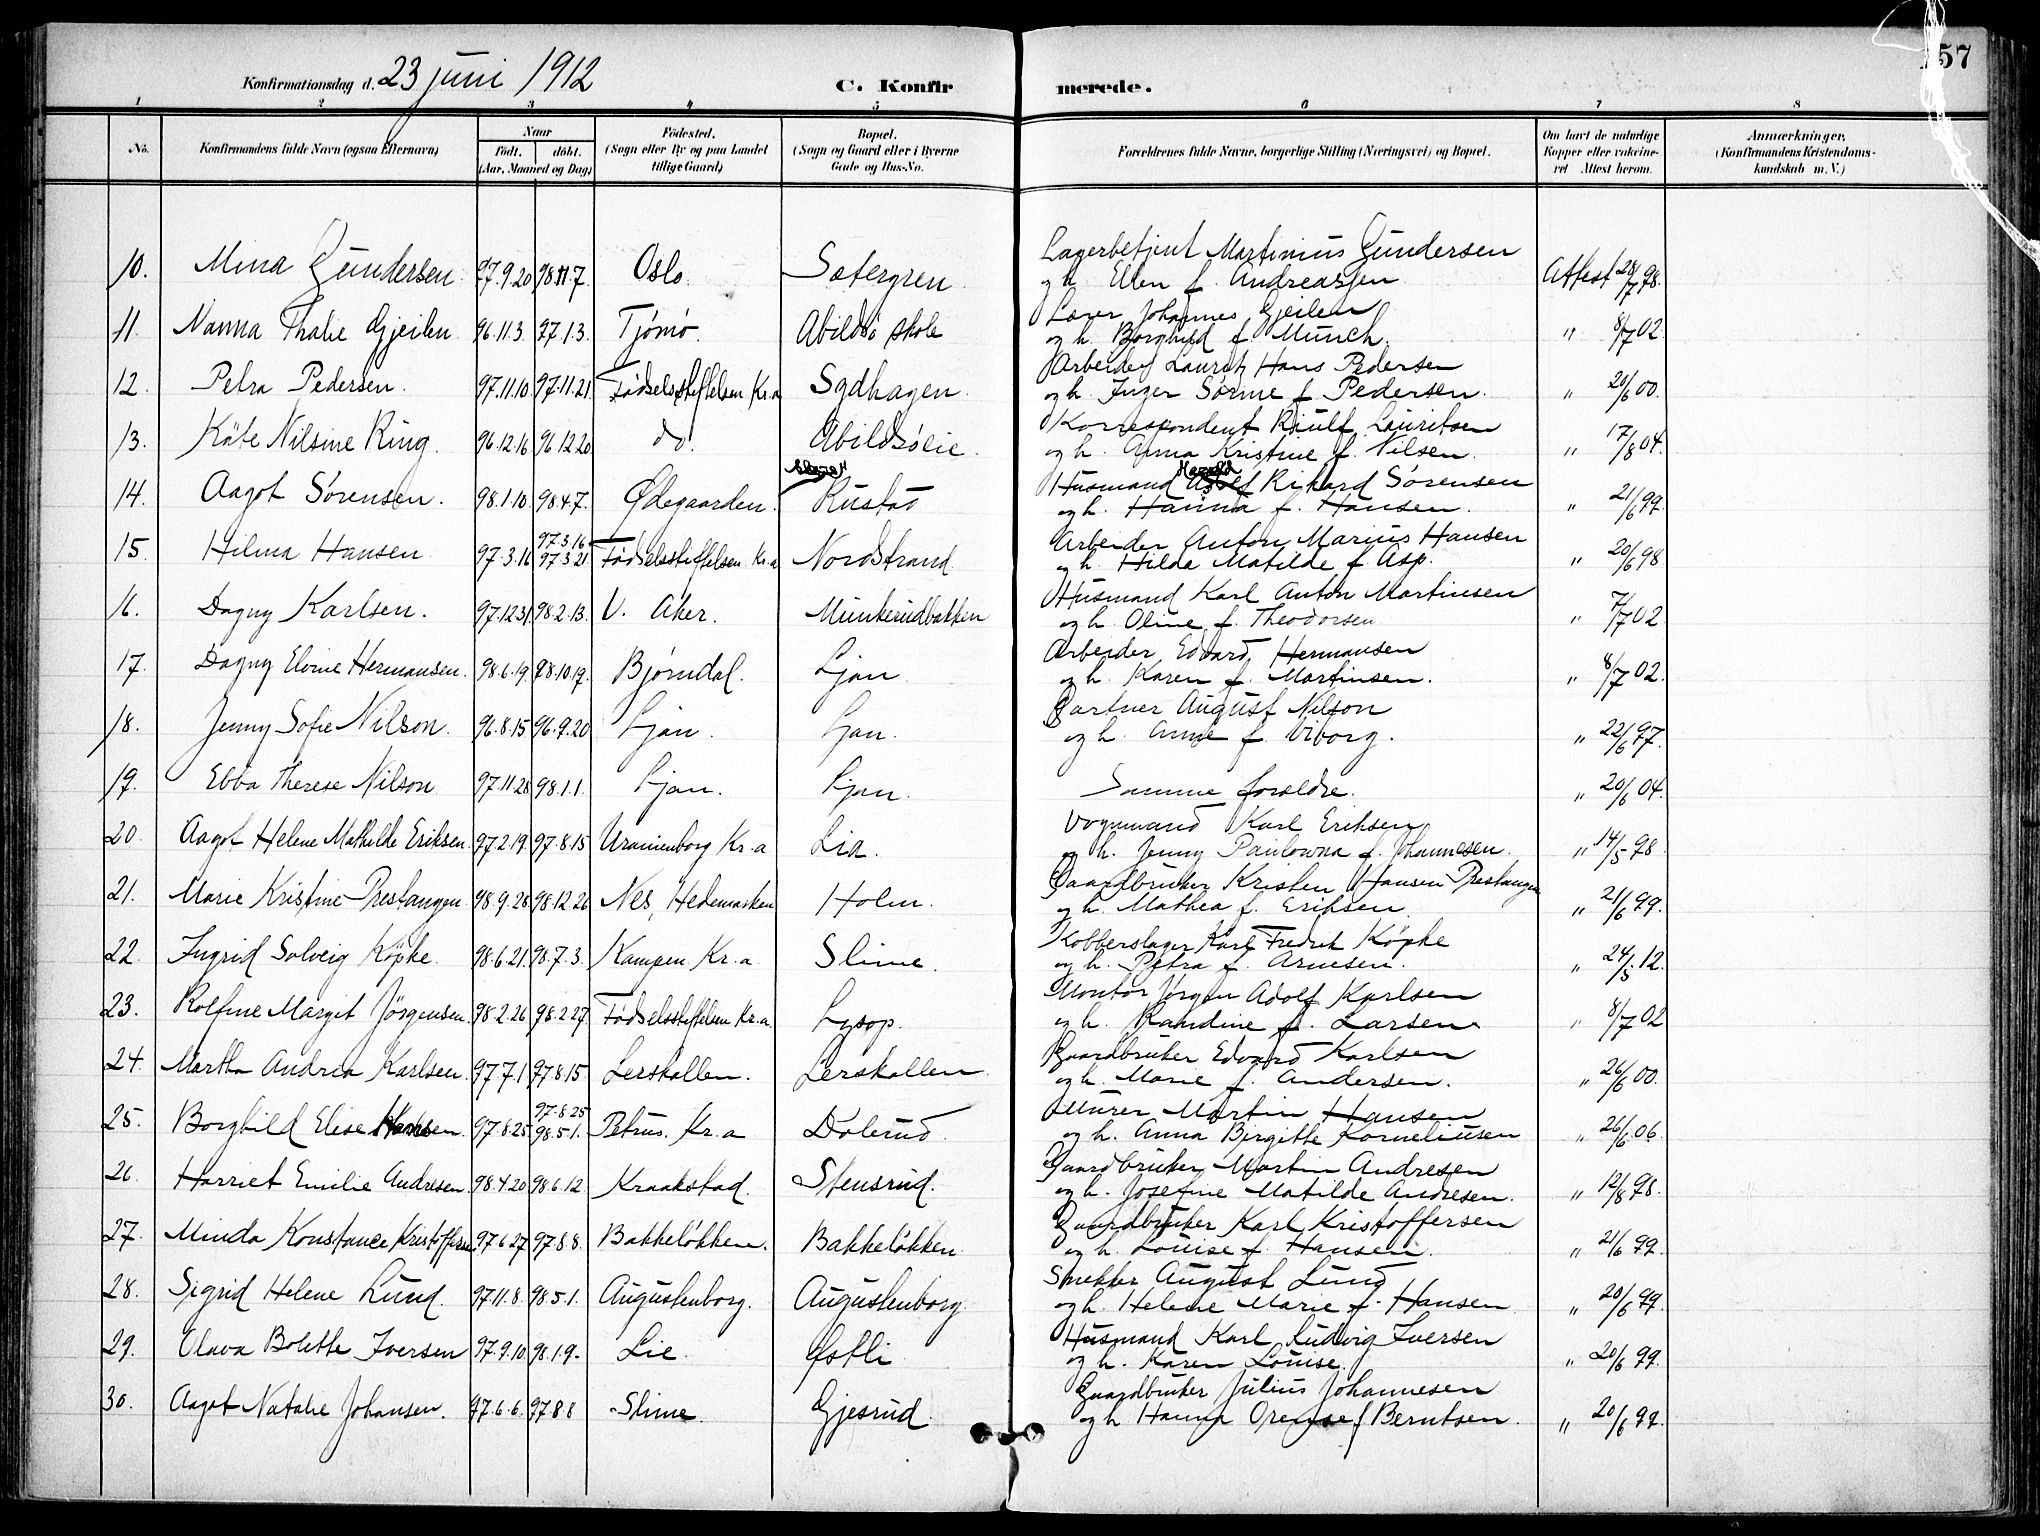 Konfirmationsdag d. 23 juni 1912 C. Konfirmerede. 157
1 2 3 4 5 6 7 8
No. Konfirmandens fulde Navn (ogsaa Efternavn) Naar Födt. döbt. (Aar, Maaned og Dag) Födested. (Sogn eller By og paa Landet tillige Gaard) Bopæl. (Sogn og Gaard eller i Byerne Gade og Hus-No. Forældrenes fulde Navne, borgerlige Stilling (Næringsvei) og Bopæl. Om havt de naturlige Kopper eller vakcineret Attest herom. Anmærkninger. (Konfirmandens Kristendomskundskab m. V.)
10. Mina Gundersen 97.9.20 98.11.7. Oslo. Sætergren Lagerbetjent Martinius Gundersen
og h. Ellen f. Andreassen Attest 28/7 98.
11. Nanna Thalie Gjeilen 96.11.3. 97.1.3. Tjömö. Abildsö skole Lærer Johannes Gjeilen
og h. Borghild f. Münch. " 8/7 02
12. Petra Pedersen. 97.11.10. 97.11.21. Födselsstiftelsen Kr.a Sydhagen. Arbeider Lauritz Hans Pedersen
og h. Inger Sörine f. Pedersen. " 20/6 00.
13. Käte Nilsine Ring. 96.12.16 96.12.20 do. Abildsöeie. Korrespondent Riulf Lauritsen
og h. Anna Kristine f. Nilsen. " 17/8 04.
14. Aagot Sörensen. 98.1.10. 98.4.7. Ödegaarden. Rustad Husmand Harald Rikard Sörensen
og h. Hanna f. Hansen. " 21/6 99.
15. Hilma Hansen 97.3.16 97.3.16 97.3.21. Födselsstiftelsen Kr.a Nordstrand. Arbeider Anton Marius Hansen
og h. Hilda Matilde f. Asp. " 20/6 98
16. Dagny Karlsen. 97.12.31. 98.2.13. V. Aker. Munkerudbakken Husmand Karl Anton Martinsen
og h. Oline f. Theodorsen " 7/7 02
17. Dagny Elvine Hermansen. 98.6.19. 98.10.19. Björndal. Ljan Arbeider Edvard Hermansen
og h. Karen f. Martinsen. " 8/7 02.
18. Jenny Sofie Nilson. 96.8.15 96.9.20 Ljan. Ljan. Gartner August Nilson
og h. Anne f. Viborg. " 22/6 97.
19. Ebba Therese Nilson 97.11.28 98.1.1. Ljan. Ljan. Samme forældre. " 20/6 04.
20. Aagot Helene Mathilde Eriksen. 97.2.19. 97.8.15 Uranienborg Kr.a Lia. Vognmand Karl Eriksen
og h. Jenny Paulowna f. Johannesen. " 14/5 98
21. Marie Kristine Prestangen. 98.9.28 98.12.26 Nes, Hedemarken Holm. Gaardbruker Kristen Hansen Prestangen
og h. Mathea f. Eriksen. " 21/6 99.
22. Ingrid Solveig Köpke. 98.6.21. 98.7.3. Kampen Kr.a Slime. Kobberslager Karl Fredrik Köpke
og h. Petra f. Arnesen. " 24/5 12.
23. Rolfine Margit Jörgensen. 98.2.26 98.2.27 Födselsstiftelsen Kr.a. Lysop. Montör Jörgen Adolf Karlsen
og h. Randine f. Larsen. " 8/7 02
24. Martha Andrea Karlsen. 97.7.1 97.8.15. Lerskallen. Lerskallen Gaardbruker Edvard Karlsen
og h. Marie f. Andersen. " 26/6 00.
25. Borghild Elise Hansen 97.8.25 97.8.25 98.5.1. Petrus. Kr.a Dalerud. Murer Martin Hansen
og h. Anna Birgitte Korneliusen " 26/6 06.
26. Harriet Emilie Andresen 98.4.20 98.6.12. Kraakstad. Stensrud. Gaardbruker Martin Andresen
og h. Josefine Matilde Andresen. " 12/8 98.
27. Minda Konstance Kristoffersen 97.6.27 97.8.8. Bakkelökken. Bakkelökken Gaardbruker Karl Kristoffersen
og h. Louise f. Hansen. " 21/6 99.
28. Sigrid Helene Lund. 97.11.8. 98.5.1. Augustenborg. Augustenborg. Snekker August Lund
og h. Helene Marie f. Hansen. " 20/6 99
29. Olava Bolette Iversen 97.9.10. 98.1.9. Lie. Östli Husmand Karl Ludvig Iversen
og h. Karen Louise. " 20/6 99.
30. Aagot Natalie Johansen. 97.6.6. 97.8.8 Slime. Gjesrud. Gaardbruker Julius Johannesen
og h. Hanna f. Berntsen. " 20/6 99.